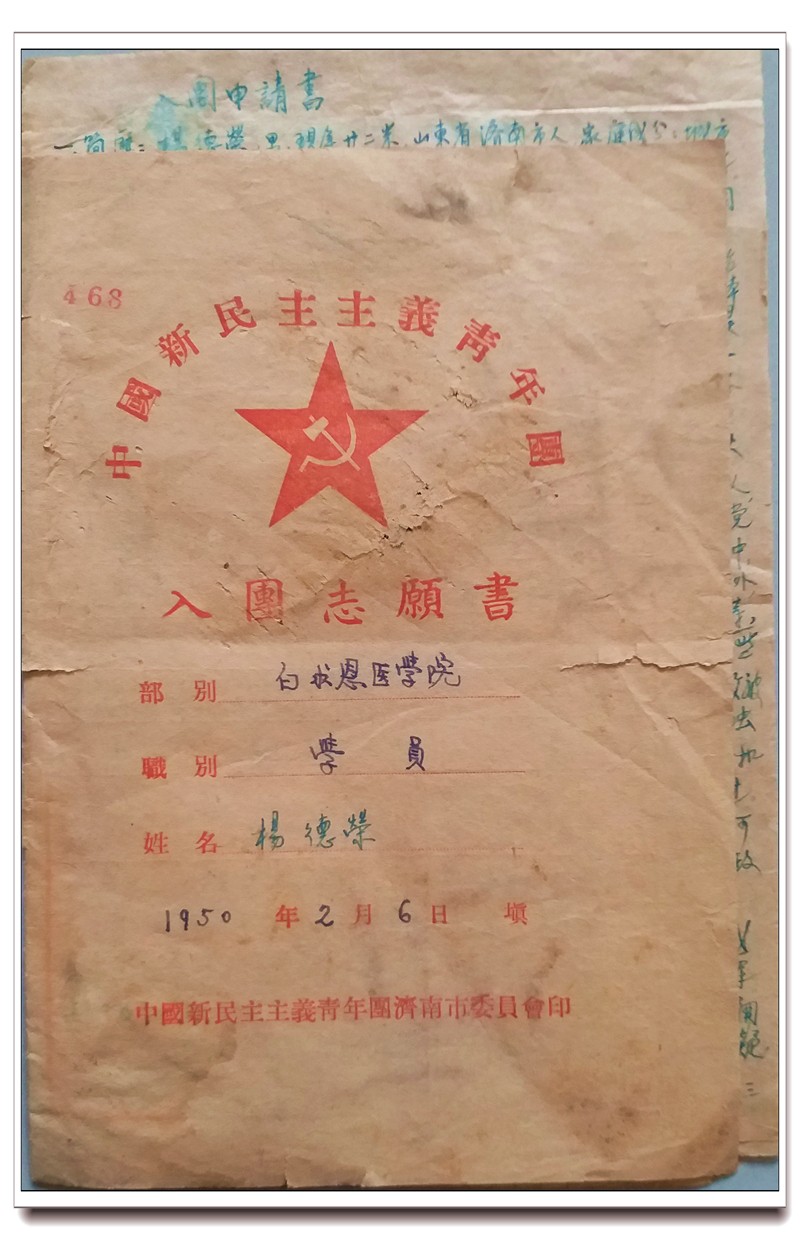 入團申請書
一.簡歷：楊德榮 男 現年廿二岁 山東省濟南市人 家庭成分：地方
468
中國新民主主義青年團
入團志願書
部別 白求恩医学院
職別 學員
姓名 楊德榮
1950年2月6日填
中國新民主主義青年團濟南市委員會印